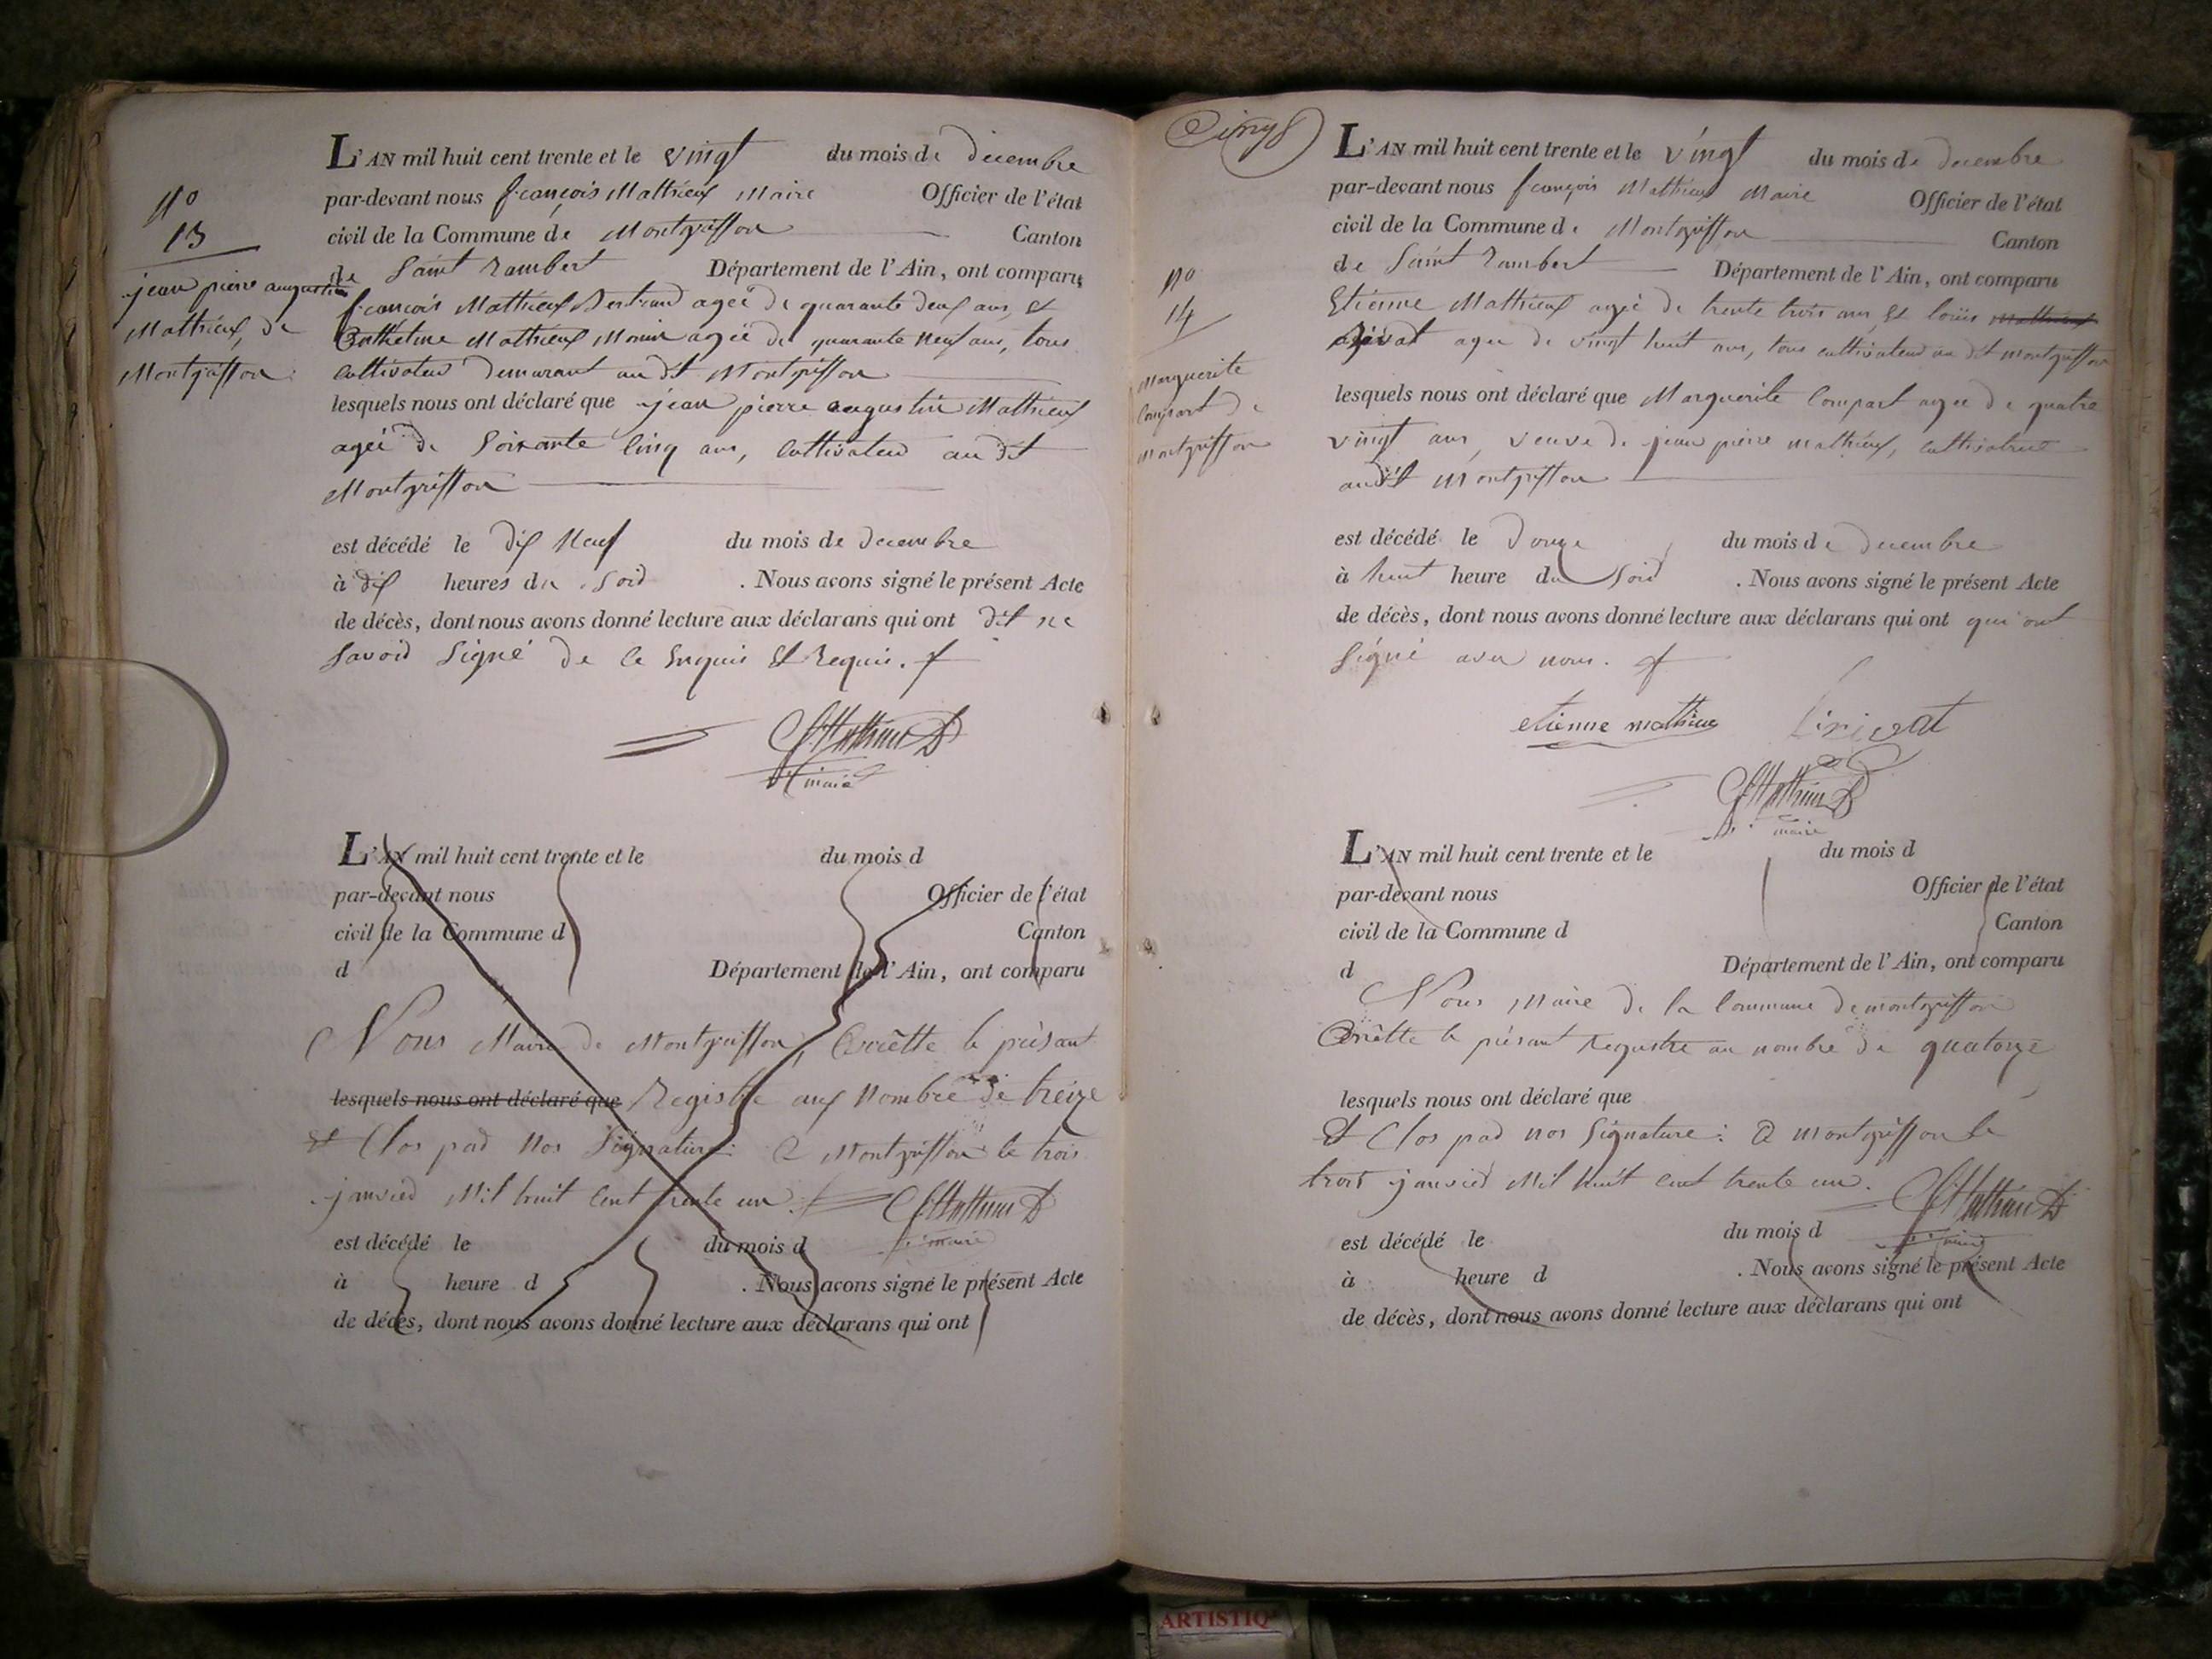 L'AN mil huit cent trente et le vingt du mois de decembre
par-devant nous françois Mathieux Maire Officier de l'état
civil de la Commune de Montgriffon Canton
de Saint Rambert Département de l'Ain, ont comparu
françois Mathieux Bertrand ageé de quarante deux ans, et
Mathieux Monin ageé de quarante neuf ans, tous
cultivateur demurant au dit Montgriffon
lesquels nous ont déclaré que jean pierre augustin Mathieux
ageé de soixante cinq ans, cultivateur au dit
Montgriffon
est décédé le dix neuf du mois de decembre
à dix heures du soir . Nous avons signé le présent Acte
de décès, dont nous avons donné lecture aux déclarans qui ont dit ne
savoir signé de ce enquis et requis.
maire
N°
13
jean pierre augustin
Mathieux, de
Montgriffon
L'AN mil huit cent trente et le du mois d
par-devant nous Officier de l'état
civil de la Commune d Canton
d Département de l'Ain, ont comparu
Nous Maire de Montgriffon, arrêtte le présant
lesquels nous ont déclaré que Registre aux Nombre de treize
et Clos par Nos Signature: a Montgriffon le trois
janvier Mil huit cent trente un.
maire
est décédé le du mois d
à heure d . Nous avons signé le présent Acte
de décès, dont nous avons donné lecture aux déclarans qui ont
L'AN mil huit cent trente et le vingt du mois de decembre
par-devant nous françois Mathieux Maire Officier de l'état
civil de la Commune de Montgriffon Canton
de Saint Rambert Département de l'Ain, ont comparu
Etienne Mathieux ageé de trente trois ans, et loüis
agee de vingt huit ans, tous cultivateur au dit montgriffon
lesquels nous ont déclaré que Marguerite Compart agee de quatre
vingt ans, veuve de jean pierre mathieux, cultivatrice
audit Montgriffon
est décédé le douze du mois de decembre
à huit heure du soir . Nous avons signé le présent Acte
de décès, dont nous avons donné lecture aux déclarans qui ont qui ont
signé avec nous.
etienne mathieux
maire
N°
14
Marguerite
Compart de
montgriffon
L'AN mil huit cent trente et le du mois d
par-devant nous Officier de l'état
civil de la Commune d Canton
d Département de l'Ain, ont comparu
Nous Maire de la Commune de montgriffon
arrêtte le présant registre au nombre de quatorze
lesquels nous ont déclaré que
et Clos par nos Signature: a montgriffon le
trois janvier Mil huit cent trente un.
est décédé le du mois d
à heure d . Nous avons signé le présent Acte
de décès, dont nous avons donné lecture aux déclarans qui ont
ARTISTIQ